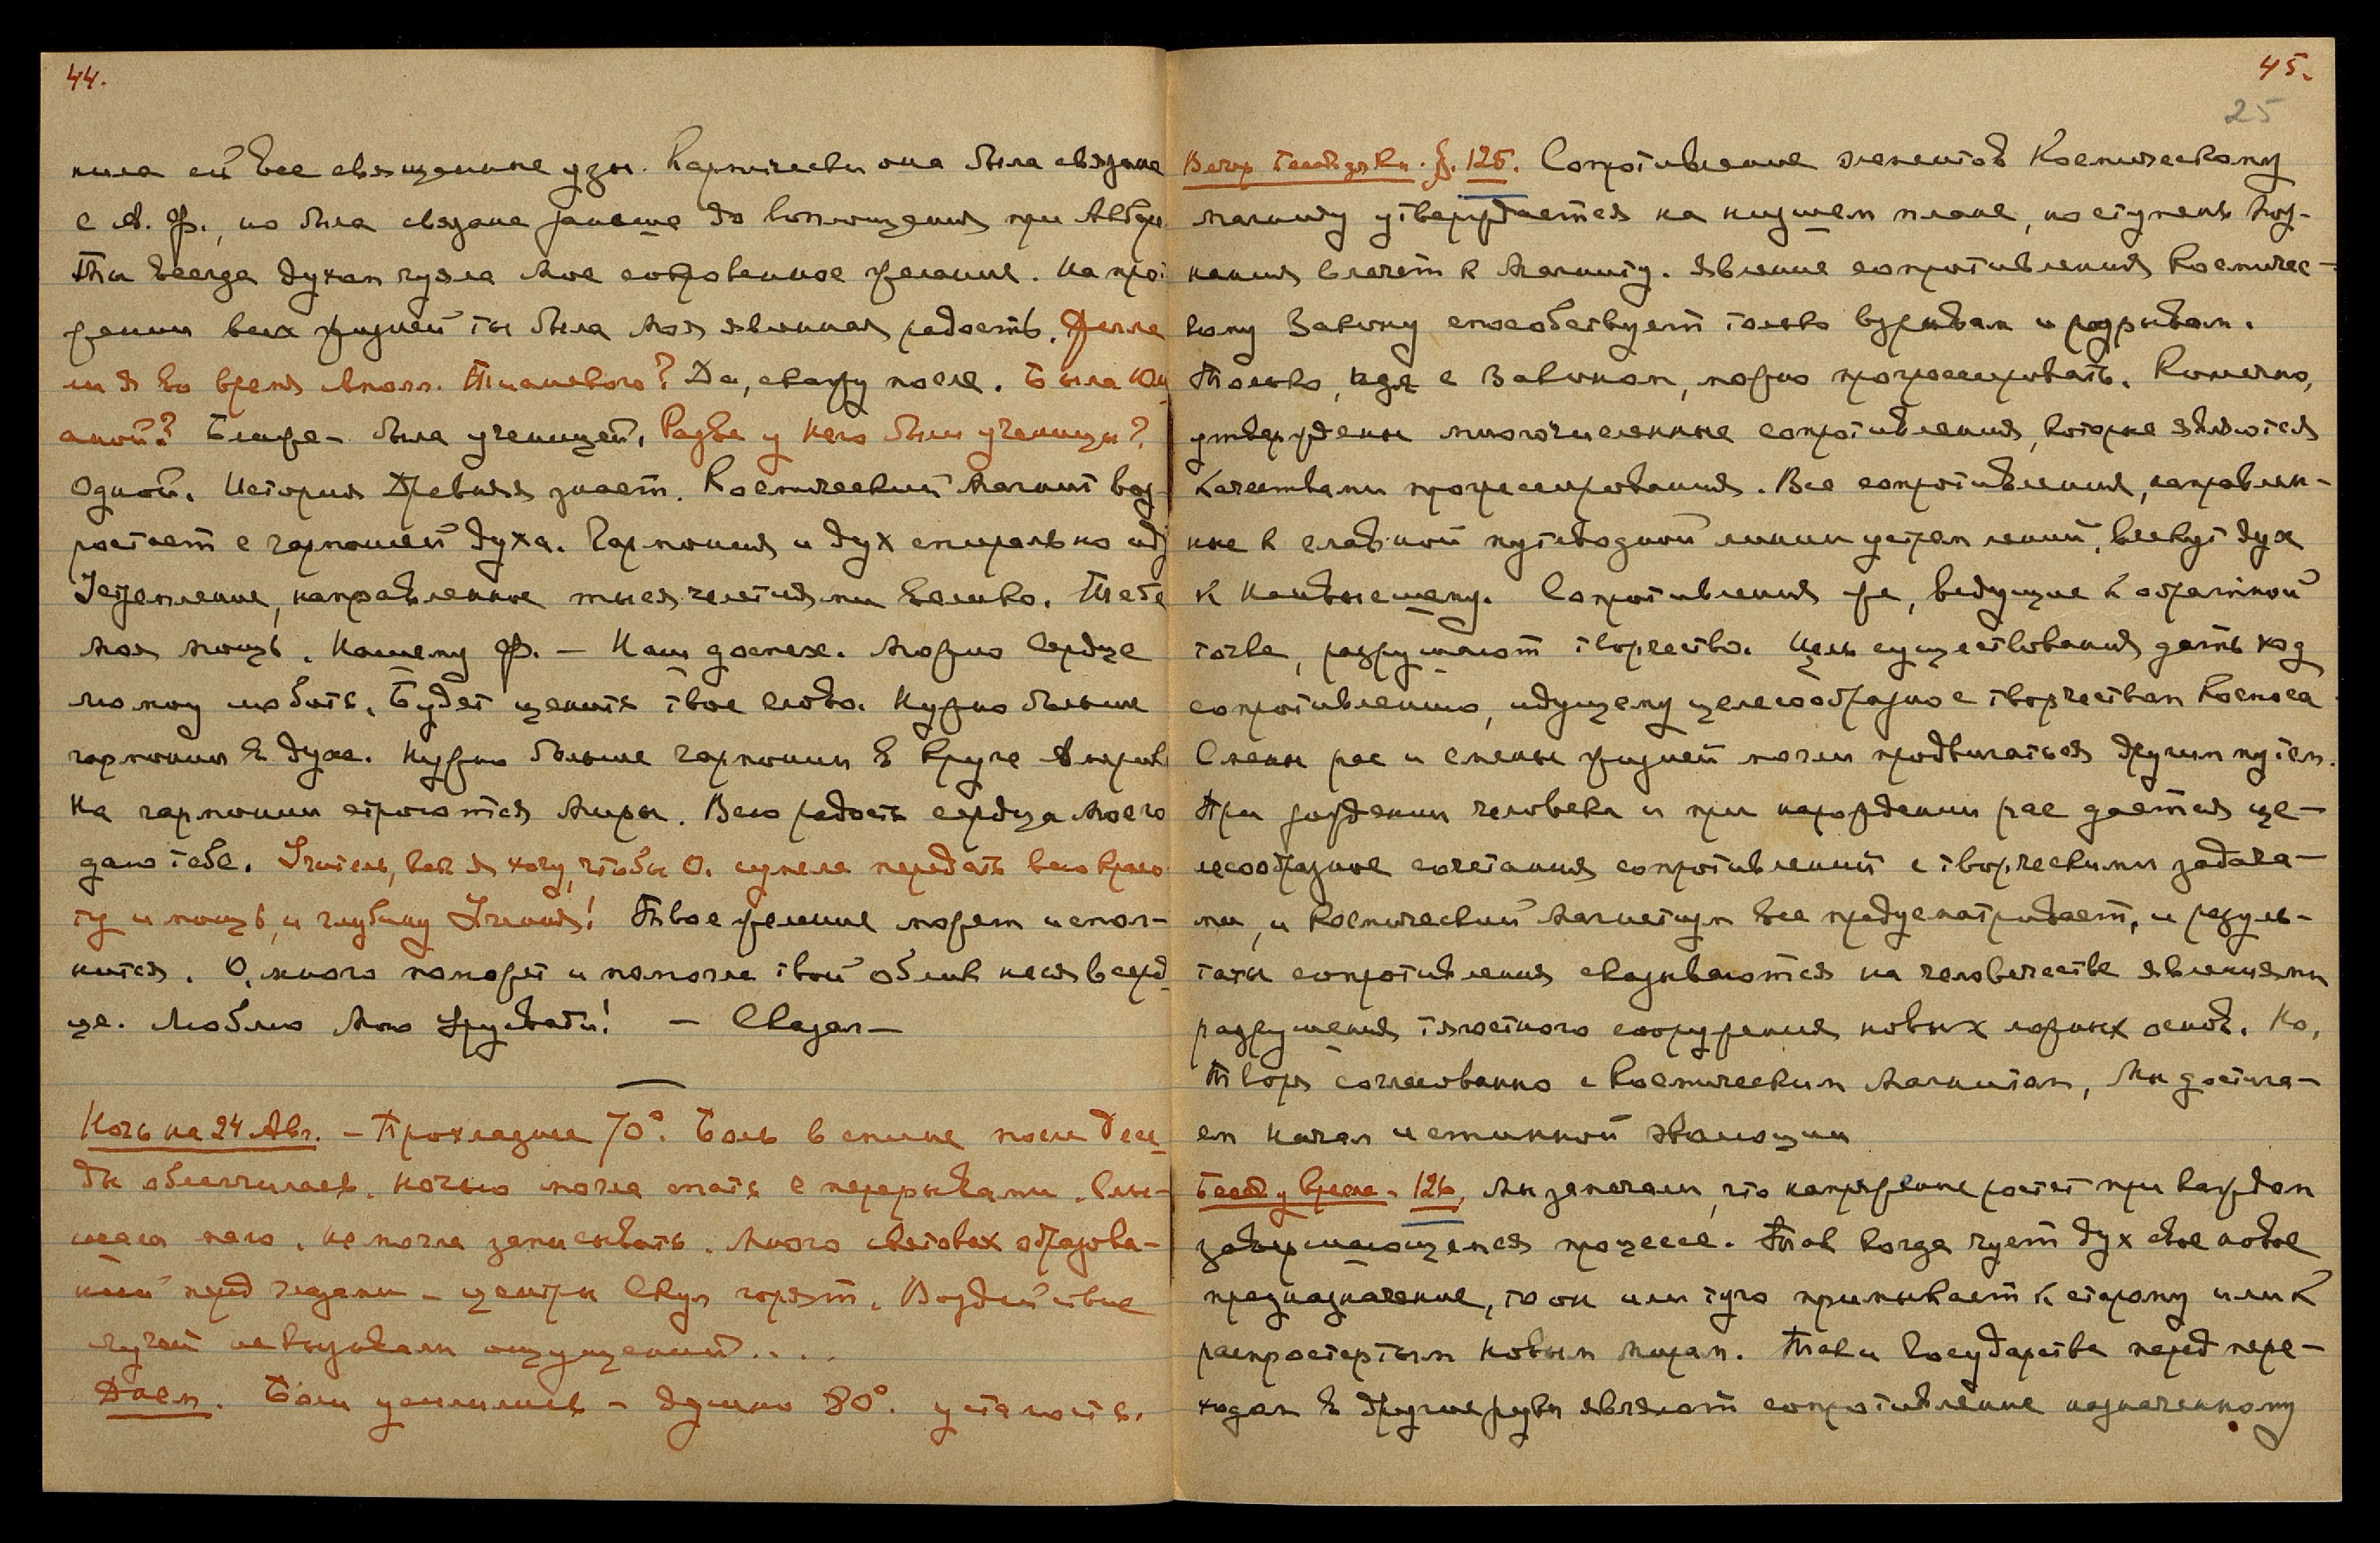 44.
нила ей все священные узы. Кармически она была связана
с А. Ф., но была связана раньше до воплощения при Акбаре
Ты всегда духом чуяла мое сокровенное желание. На про
жении всех жизней ты была моя явленная радость. Жила
ли я во время Аполл. Тианского? Да, скажу после. Была
аной? Ближе - была ученицей. Разве у него были ученицы?
Одной. История Древняя знает. Космический Магнит воз-
растает с гармонией духа. Гармония и дух спирально
Устремление, направленное тысячелетиями велико. Тебе
моя мощь. Нашему Ф. — Наш доспех. Можно Сердце
мому любить. Будет ценить твое слово. Нужно больше
гармонии в духе. Нужно больше гармонии в круге
На гармонии строются Миры. Всю радость сердца моего
даю тебе. Учитель, как я хочу, чтобы О. сумела передать всю красо
ту и мощь, и глубину Учения! Твое желание может испол-
нится. О, много поможет и помогла твой облик неся в серд
це. Люблю Мою Урусвати! — Сказал —
Ночь на 24 Авг. - Прохладнее 70°. Боль в спине после Бесе
ды облегчилась. Ночью могла спать с перерывами. Слы-
шала мало, не могла записывать. Много световых образова-
ний перед глазами - центры скул горят. Воздействие
лучей не вызывали ощущений....
Днем. Боли усилились - душно 80°. усталость.
45.
25
Вечер. Беседа §. 125. Сопротивление элементов Космическому
магниту утверждается на низшем плане, но ступень
влечет к Магниту. Явление сопротивления Космичес-
кому Закону способствует только взрывам и разрывам.
Только, идя с Законом, можно прогрессировать. Конечно,
утверждены многочисленные сопротивления, которые являются
качествами прогрессирования. Все сопротивления, направлен-
ные к главной путеводной линии устремлений, влекут дух
к Наивысшему. Сопротивления же, ведущие к обратной
точке, разрушают творчество. Цель существования дать ход
сопротивлению, идущему целесообразно с творчеством Космоса
Смены рас и смены жизней могли продвигаться другим путем.
При рождении человека и при нарождении рас дается це-
лесообразное сочетания сопротивлений с творческими задача-
ми, и Космический Магнетизм все предусматривает, и резуль-
таты сопротивления сказываются на человечестве явлениями
разрушения тягостного сооружения новых ложных основ. Но,
Творя согласованно с Космическим Магнитом, Мы достига-
ем начал истинной эволюции
Бесед. у кресла. 126, Мы замечали, что напряжение ростет при каждом
завершающемся процессе. Так когда чует дух свое новое
предназначение, то он или туго примыкает к старому или к
распростертым Новым мирам. Так и Государства перед пере-
ходом в другие руки являют сопротивление назначенному